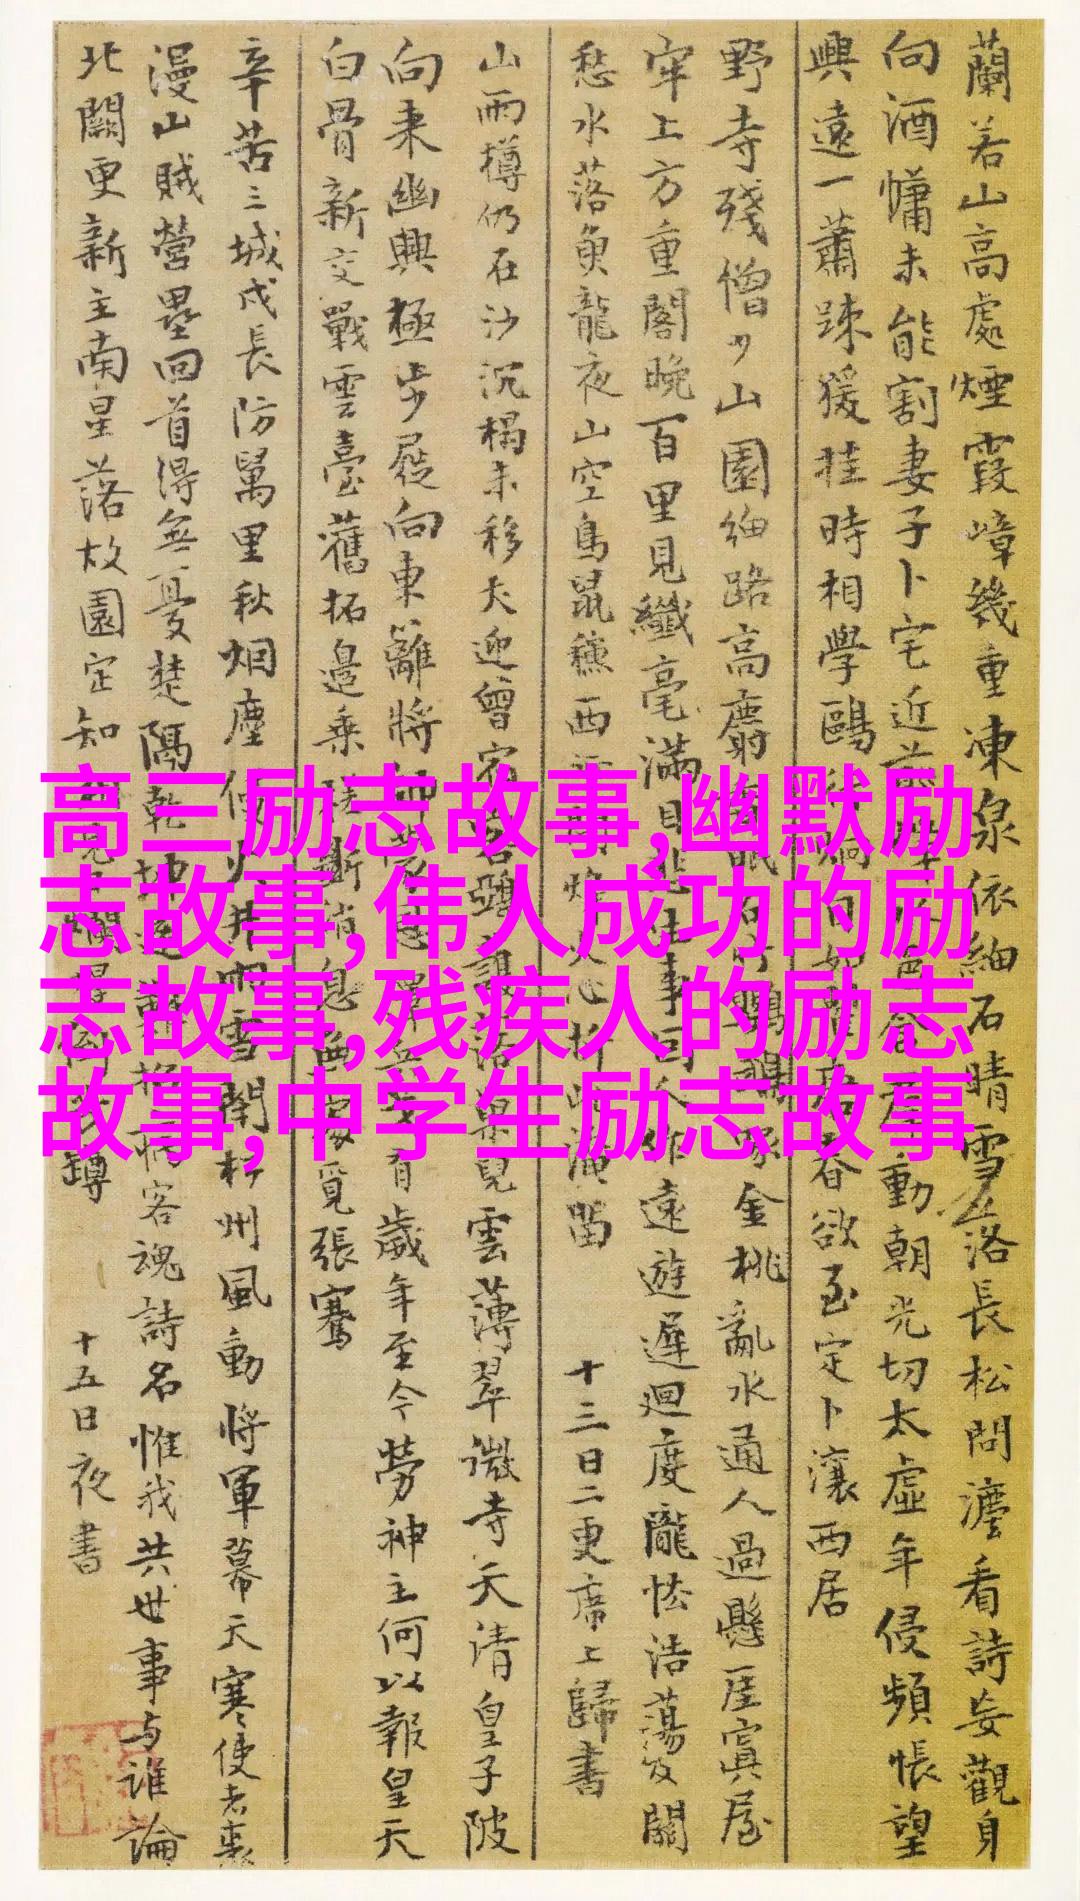 蘭若山高處煙霞嶂幾重凍泉依細石晴雪落長松問灋看詩妄觀身
向酒慵未能割妻子卜宅近前動朝光切太虛年侵頻悵望
興遠一蕭踈猨挂時相學鷗春欲至定卜瀼西居
野寺殘僧少山園細路高麝金桃亂水通人過懸崖寘屋
牢上方重閣晚百里見纖毫滿目遠遊遲迴度隴怯浩蕩及關
愁水落魚龍夜山空鳥鼠穐西此淹留 十三日二更席上歸書
山雨樽仍在沙沉榻未移犬迎曾宿見雲薄翠微寺天清皇子陂
向来幽興極步屧向東籬將有歲年至今勞神主何以報皇天
白骨新交戰雲臺舊拓邊乘覓張騫
辛苦三城戍長防萬里秋烟塵雪閉松州風動将軍幕天寒使者裘
漫山賊營壘回首得無憂楚隔乾坤客魂詩名惟我共世事与誰論
北闕更新主南星落故園定知樽 十五日夜書
高三励志故事,幽默励
志故事,伟人成功的励
志故事,残疾人的励志
故事,中学生励志故事